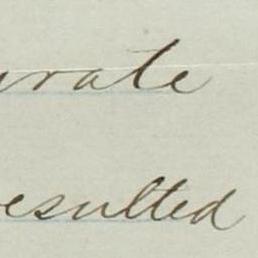 urate
resulted